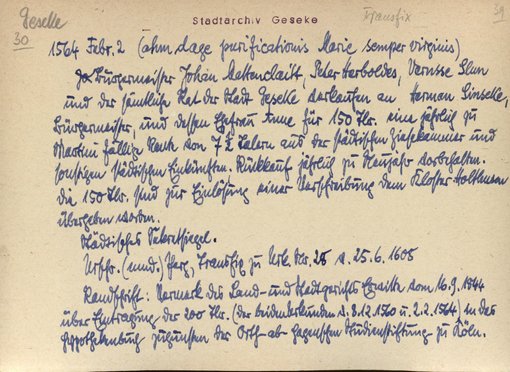 Geseke
30
Stadtarchiv Geseke
Transfix
39
1564 Febr. 2 (ahm dage purificationis Marie semper virginis)
Bürgermeister Johan Mattenclaitt, Peter Herboldes, Vernsse
und der sämtliche Rat der Stadt Geseke verkaufen an Herman Ginselke,
Bürgermeister, und dessen Ehefrau Anne für 150 Tlr. eine jährlich zu
Martini fällige Rente von 7½ Talern aus der städtischen Ziesekammer und
sonstigen städtischen Einkünften. Rückkauf jährlich zu Neujahr vorbehalten.
die 150 Tlr. sind zur Einlösung einer Verschreibung dem Kloster Holthausen
übergeben worden.
Städtisches Sekretsiegel.
Urschr. (nund.) Perg., Transfix zu Urk. Nr. 28 v. 25.6.1605
Randschrift: Vermerk des Land- und Stadtgerichts Erwitte vom 16.9.1844
über Eintragung der 200 Tlr. (der beiden Urkunden v. 8.12.1560 u. 2.2.1564) in das
Hypothekenbuch zugunsten der Orth-ab-Hagenschen Studienstiftung zu Köln.